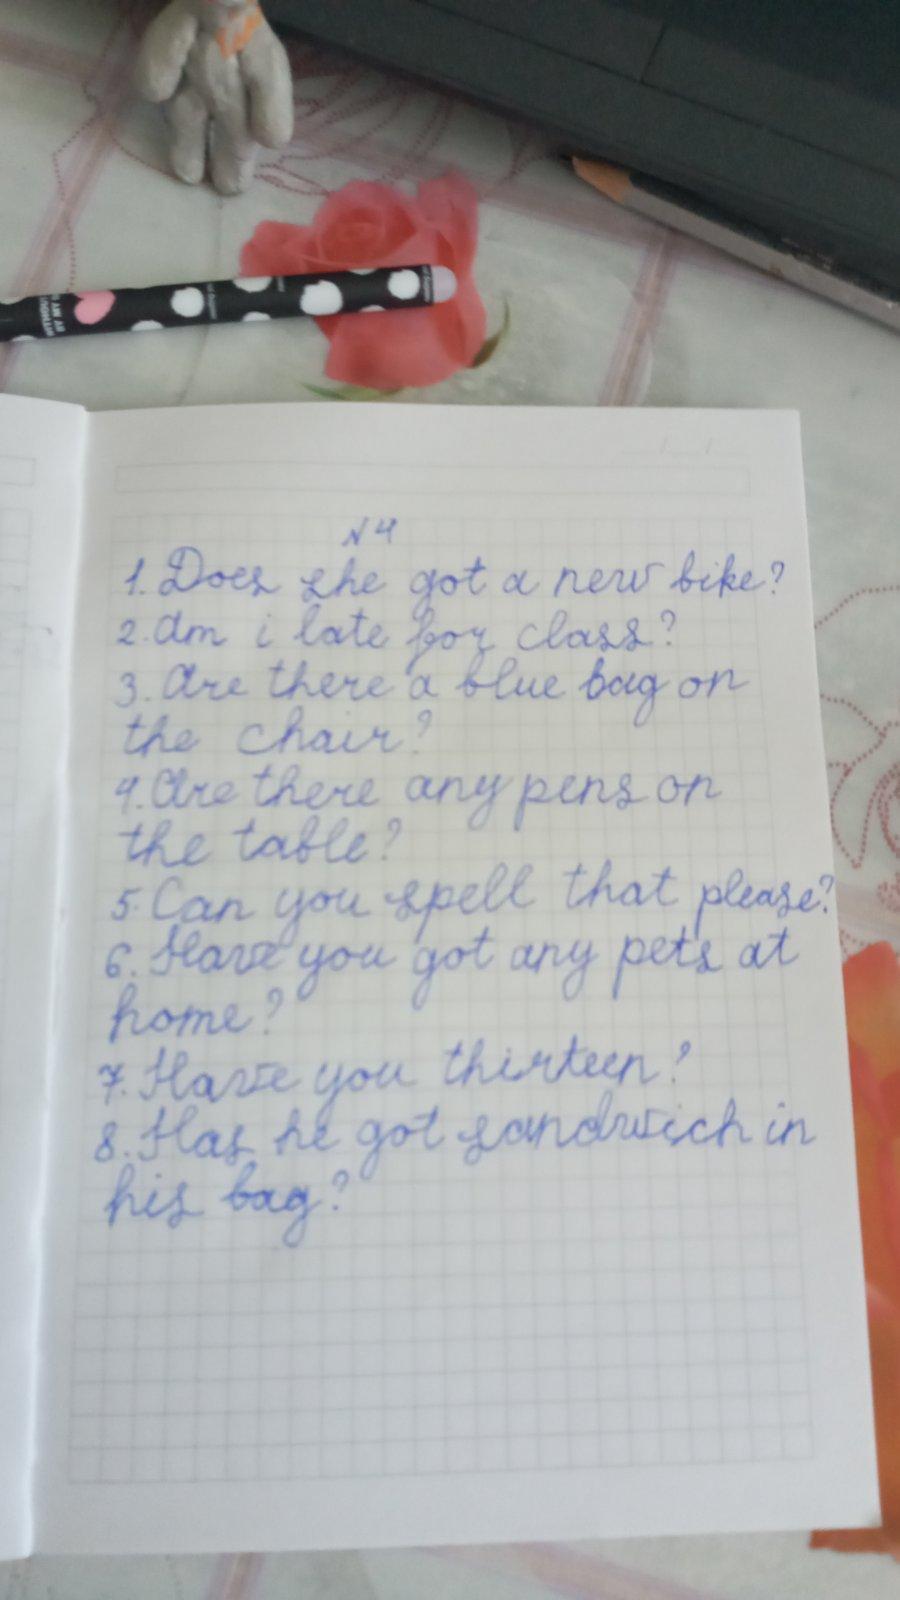 N4
1. Does she got a new bike?
2. Am i late for class?
3. Are there a blue bag on
the chair?
4. Are there any pens on
the table?
5. Can you spell that please?
6. Have you got any pets at
home?
7. Have you thirteen?
8. Has he got sandwich in
his bag?